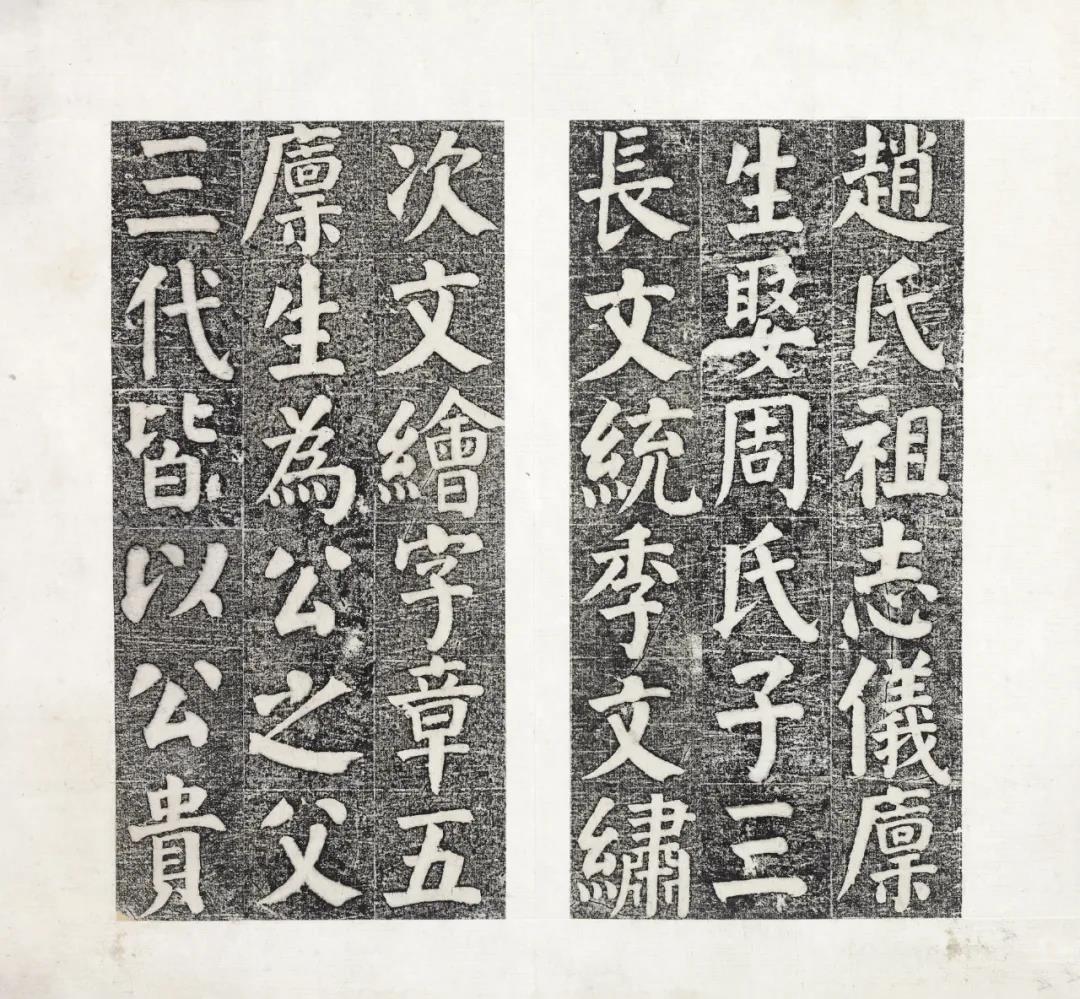 趙氏祖志儀廩
生娶周氏子三
長文統季文繡
次文繪字章五
廩生為公之父
三代皆以公貴